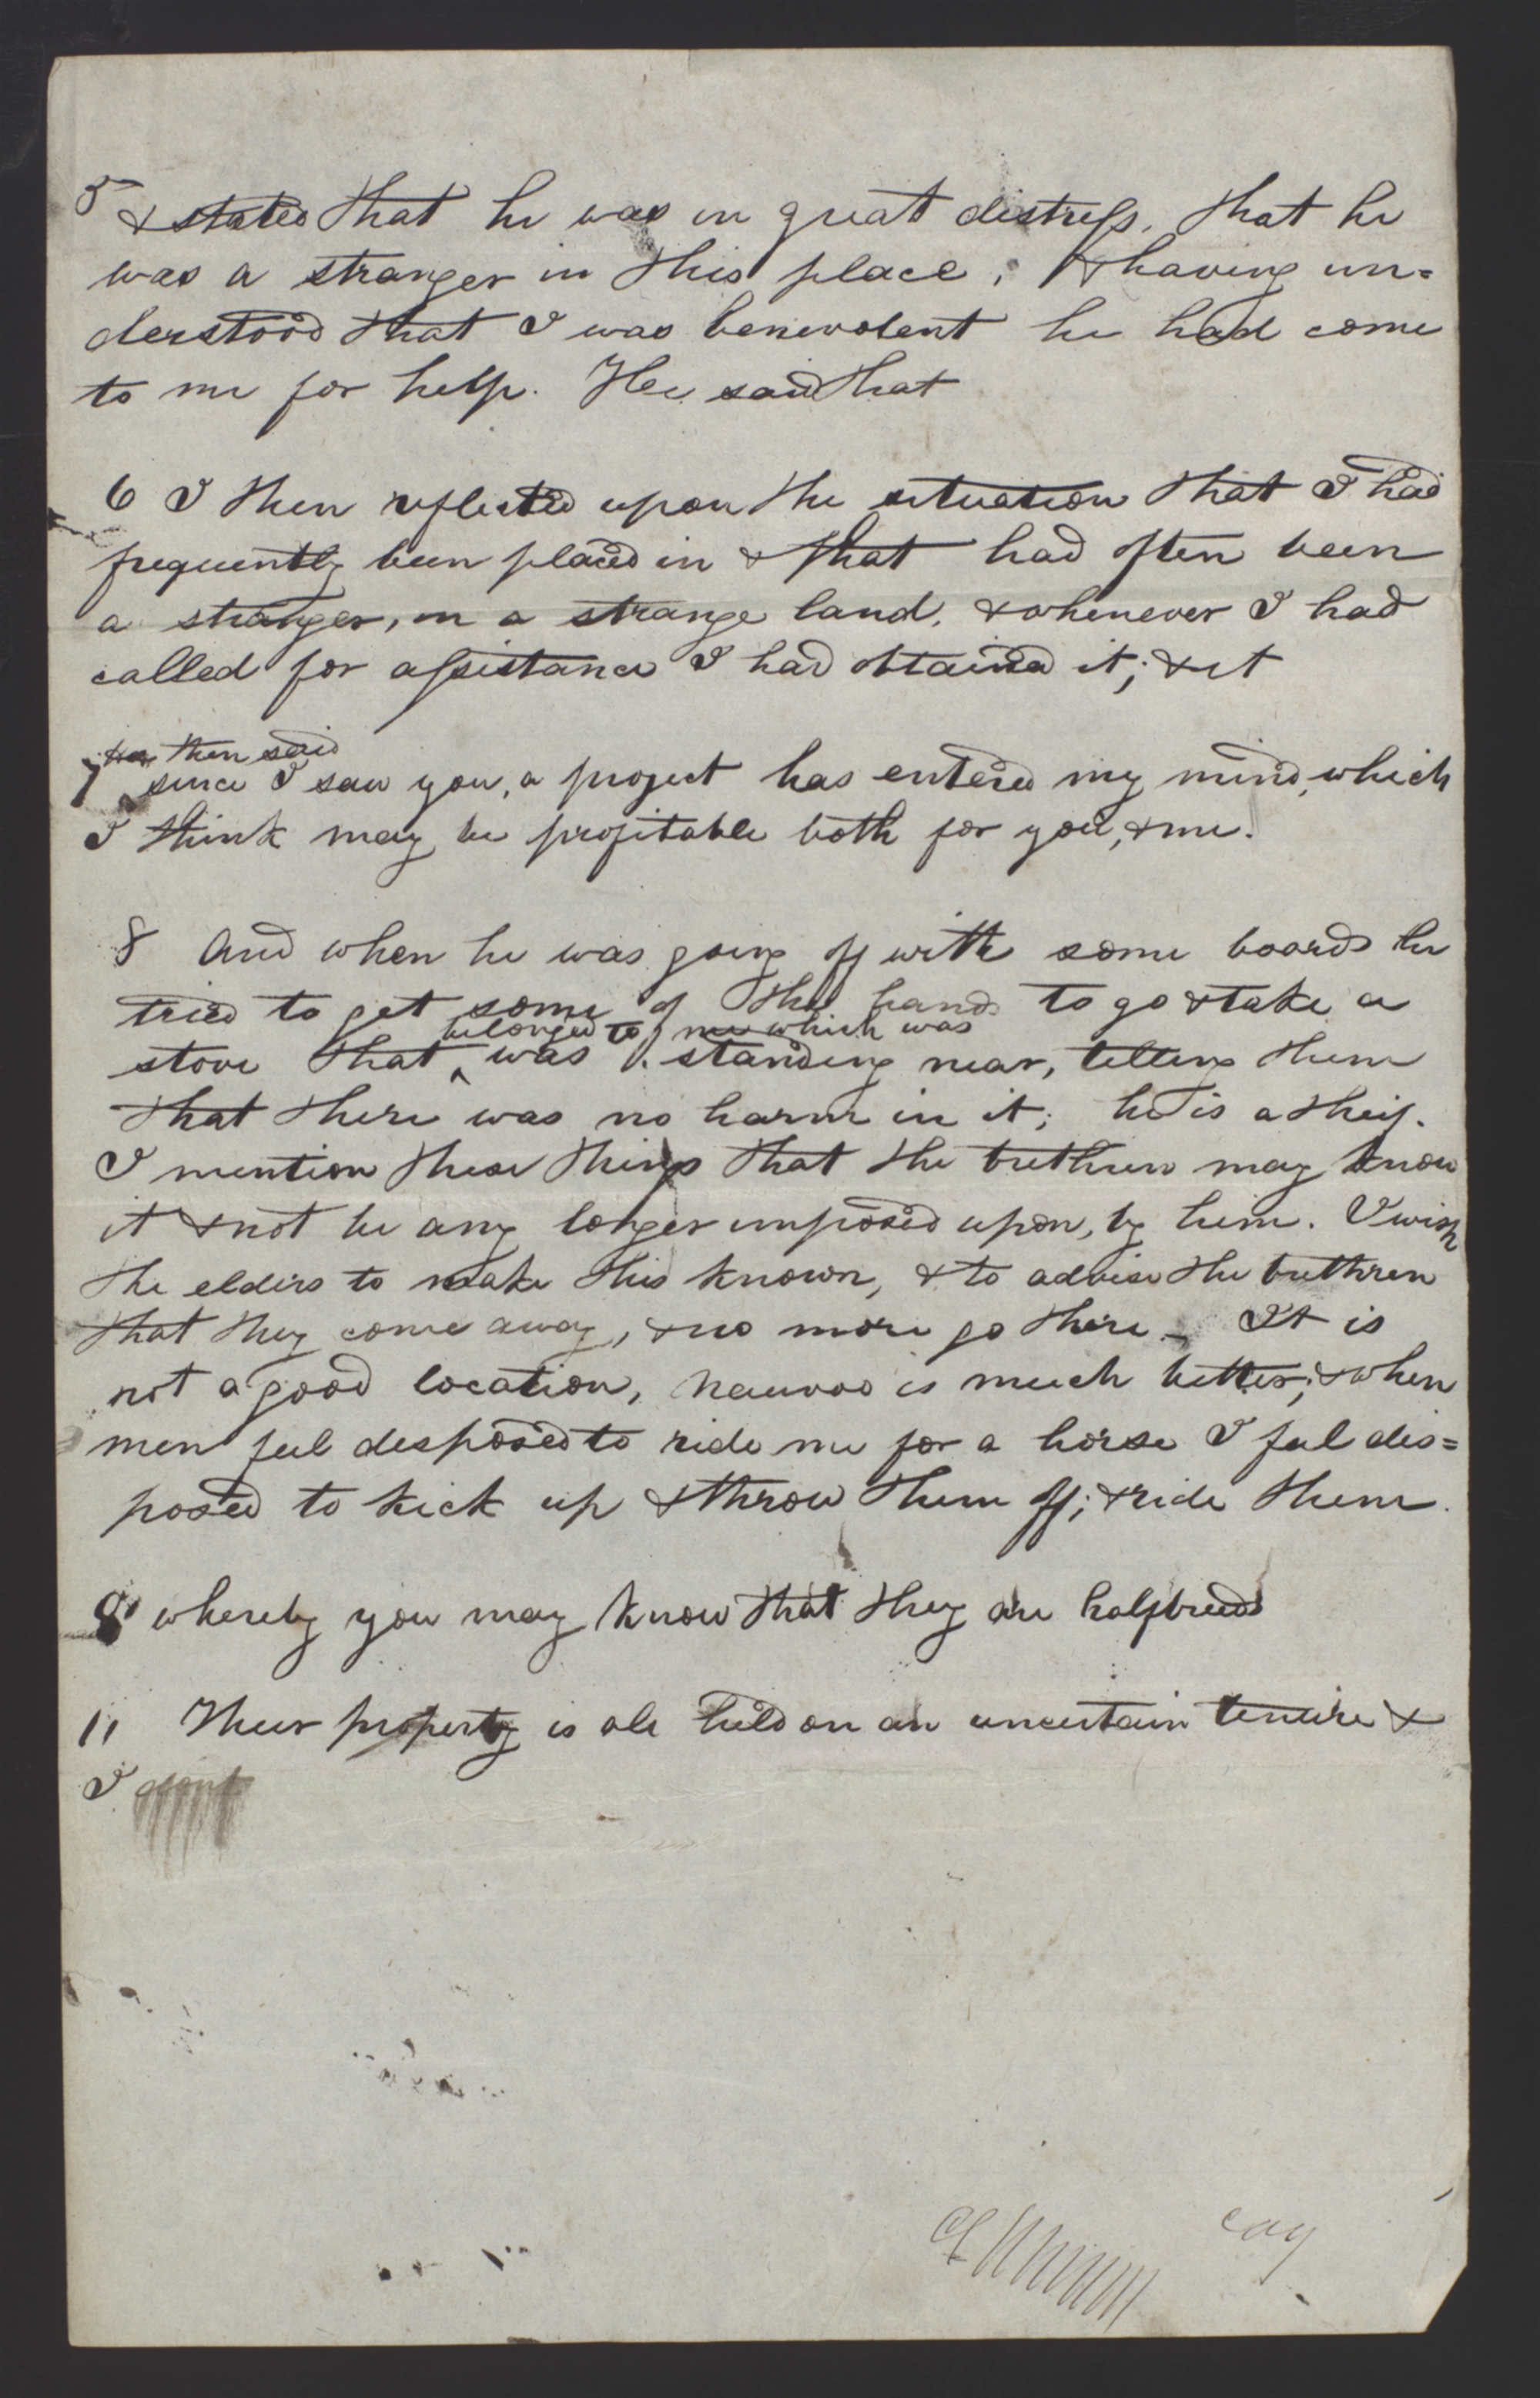 5 & stated that he was in great distress, that he
was a stranger in this place, & having un=
derstood that I was benevolent he had come
to me for help. He said that
6 I then reflected upon the situation that I had
frequently been placed in & that had often been
a stranger, in a strange land, & whenever I had
called for assistance I had obtained it; & it
He then said
7 since I saw you, a project has entered my mind, which
I think may be profitable both for you, & me.
8 And when he was going off with some boards he
tried to get some of the hands to go & take a
belonged to me which was
stove that was standing near, telling them
that there was no harm in it; he is a theif.
I mention these things that the brethren may know
it & not be any longer imposed upon, by him. I wish
the elders to make this known, & to advise the brethren
that they come away, & no more go there – It is
not a good location, Nauvoo is much better; & when
men feel desposed to ride me for a horse I feel dis=
posed to kick up & throw them off; & ride them.
8 whereby you may know that they are halfbreeds
11 Their property is all held on an uncertain tenure &
I dont